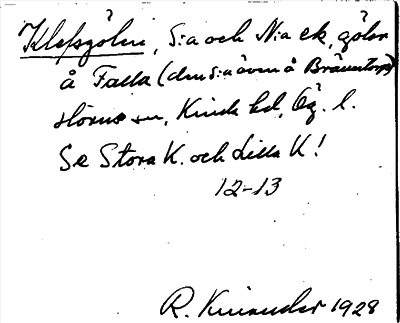 Klefsgölen, S:a och N:a ek. gölar
å Falla (den S:a även å Brännstorp)
sn, Kinda hd, Ög. l.
Se Stora K. och Lilla K!
12-13
R. Kinander 1928